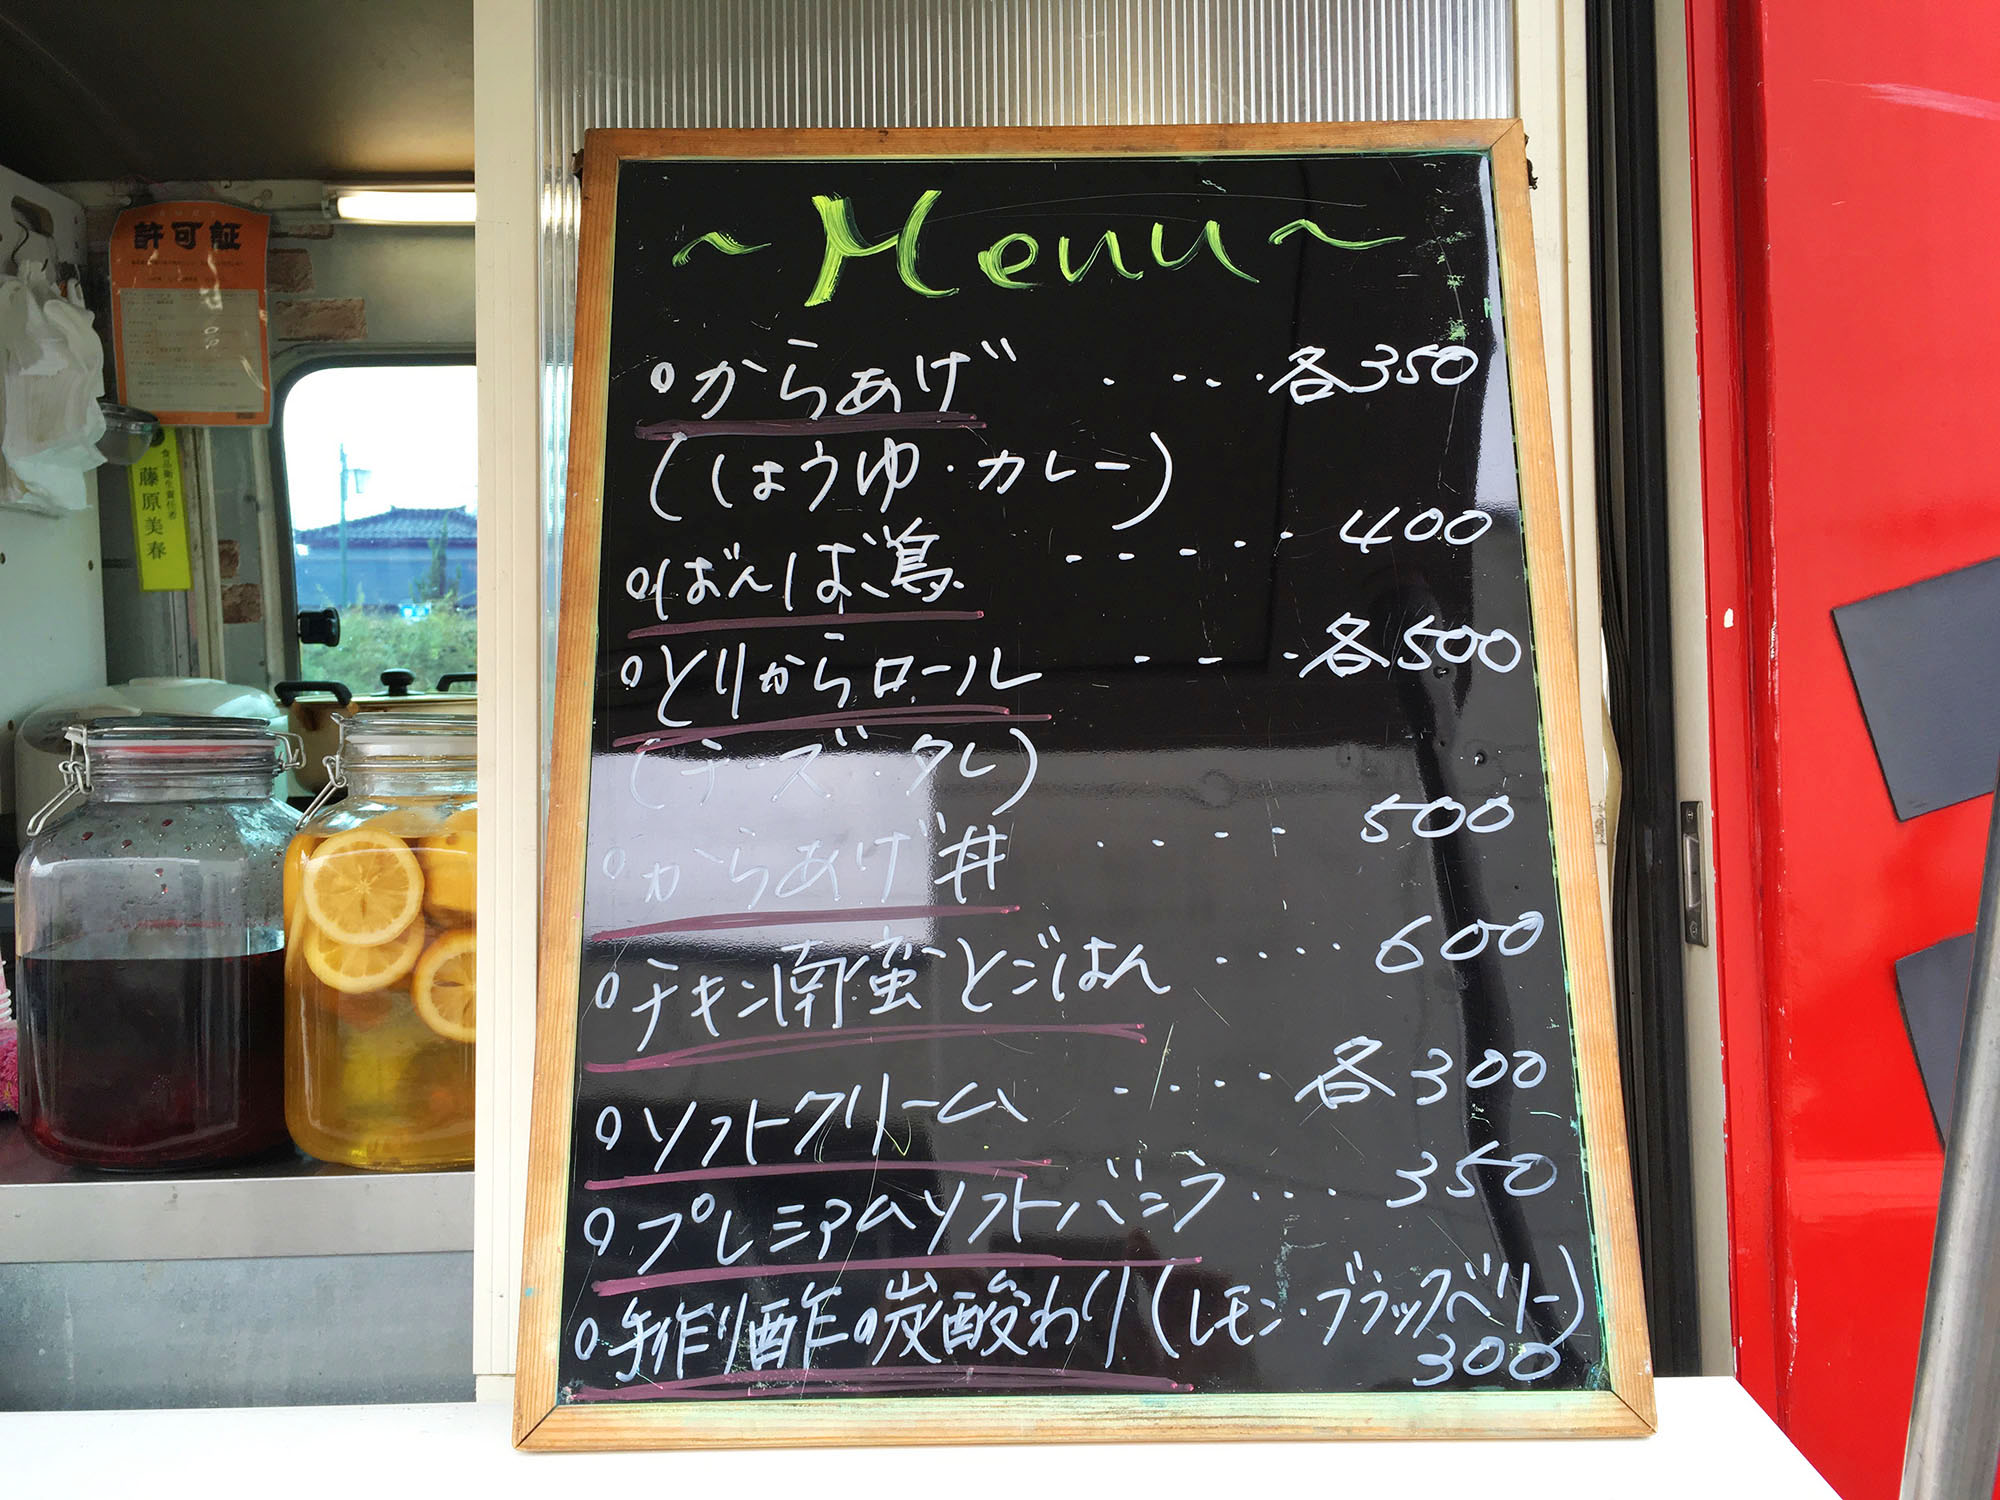 許可証
食品衛生責任者
藤原美春
~Menu~
からあげ ・・・・各350
(しょうゆ・カレー)
ばんば鳥 ・・・・・・400
とりからロール ・・・各500
(チーズ・タレ)
からあげ丼 ・・・・500
チキン南蛮とごはん ・・・・600
ソフトクリーム ・・・・各300
プレミアムソフトバニラ・・・350
手作り酢の炭酸わり(レモン・ブラックベリー)
300